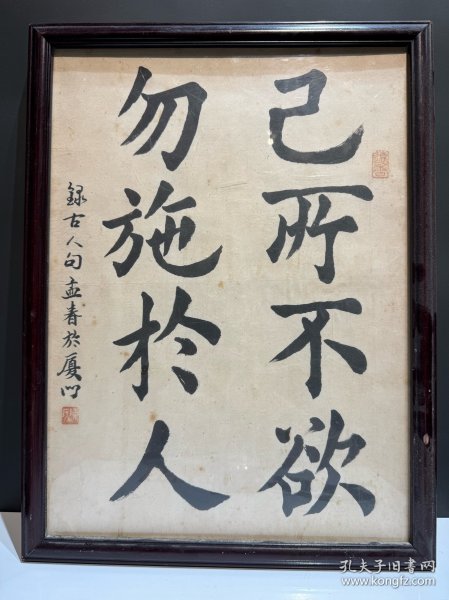 己所不欲
勿施於人
録古人句孟春於厦门
孔夫子旧书网
www.kongfz.com